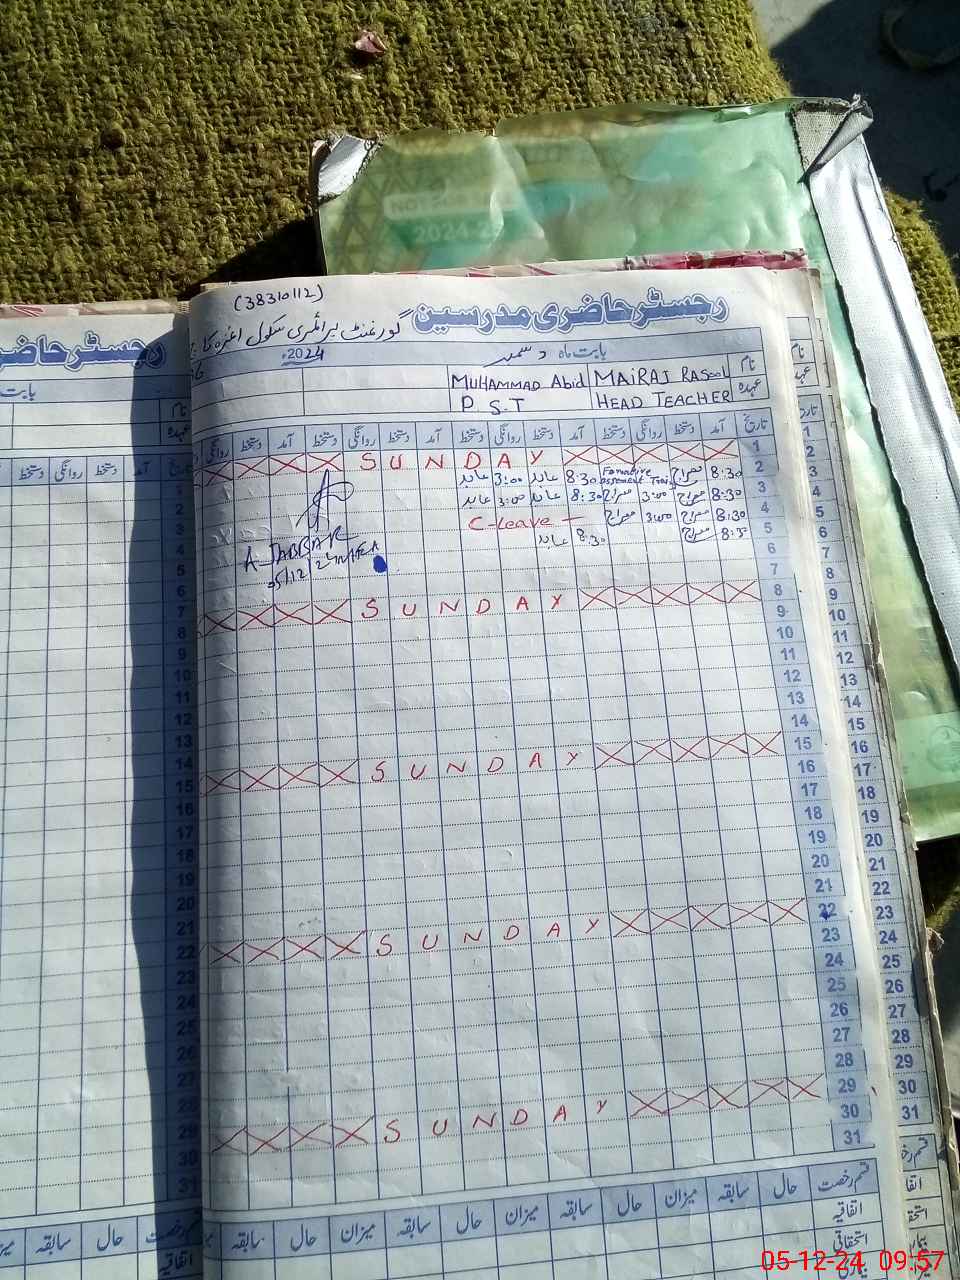 2024-2
(38310112)
رجسٹر حاضری مدرسین
گورنمنٹ پرائمری سکول
بابت ماہ دسمبر 2024ء
نام MAIRAJ RASOOL MUHAMMAD Abid
عہدہ HEAD TEACHER P.S.T
تاریخ آمد دستخط روانگی دستخط آمد دستخط روانگی دستخط آمد دستخط روانگی دستخط آمد دستخط روانگی
1 SUNDAY
2 8:30 معراج Formative Assessment 8:30 عابد 3:00 عابد
3 8:30 معراج 3:00 معراج 8:30 عابد 3:00 عابد
4 8:30 معراج 3:00 معراج C-Leave
5 8:30 معراج 8:30 عابد
A. JABBAR
05/12/24
6
7
8 SUNDAY
9
10
11
12
13
14
15 SUNDAY
16
17
18
19
20
21
22 SUNDAY
23
24
25
26
27
28
29 SUNDAY
30
31
قسم رخصت حال سابقہ میزان حال سابقہ میزان حال سابقہ میزان حال سابقہ
اتفاقیہ
استحقاقی
رجسٹر حاضری
بابت
نام
عہدہ
تاریخ آمد دستخط روانگی دستخط
حال سابقہ
اتفاقیہ
05-12-24 09:57